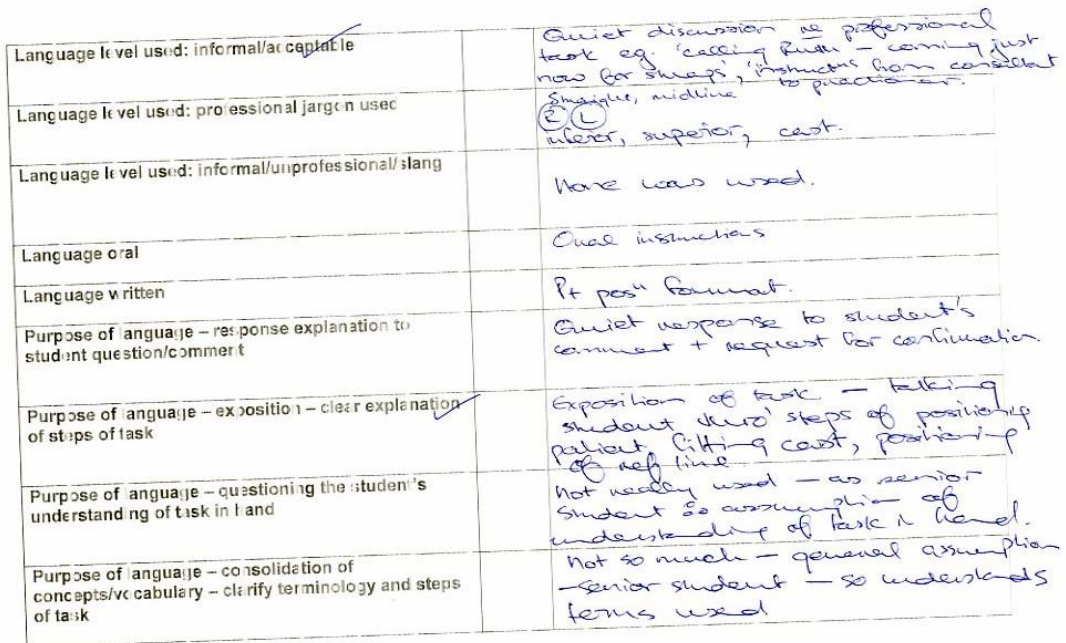 Language level used: informal/acceptable
Quiet discussion re professional
task eg. 'calling Ruth – coming just
now for sweeps', 'instructns from consultant
to practioner.
Language level used: professional jargon used
Straight, midline
(R) (L)
inferor, superior, cast.
Language level used: informal/unprofessional/slang
None was used.
Language oral
Oral instructions
Language written
Pt posn format.
Purpose of language – response explanation to
student question/comment
Quiet response to student's
comment + request for confirmation
Purpose of language – exposition – clear explanation
of steps of task
Exposition of task – talking
student thro' steps of positioning
patient, fitting cast, positioning
of ref line
Purpose of language – questioning the student's
understanding of task in hand
Not really used – as senior
student so assumption of
understanding of task in hand.
Purpose of language – consolidation of
concepts/vocabulary – clarify terminology and steps
of task
Not so much – general assumption
– senior student – so understands
terms used